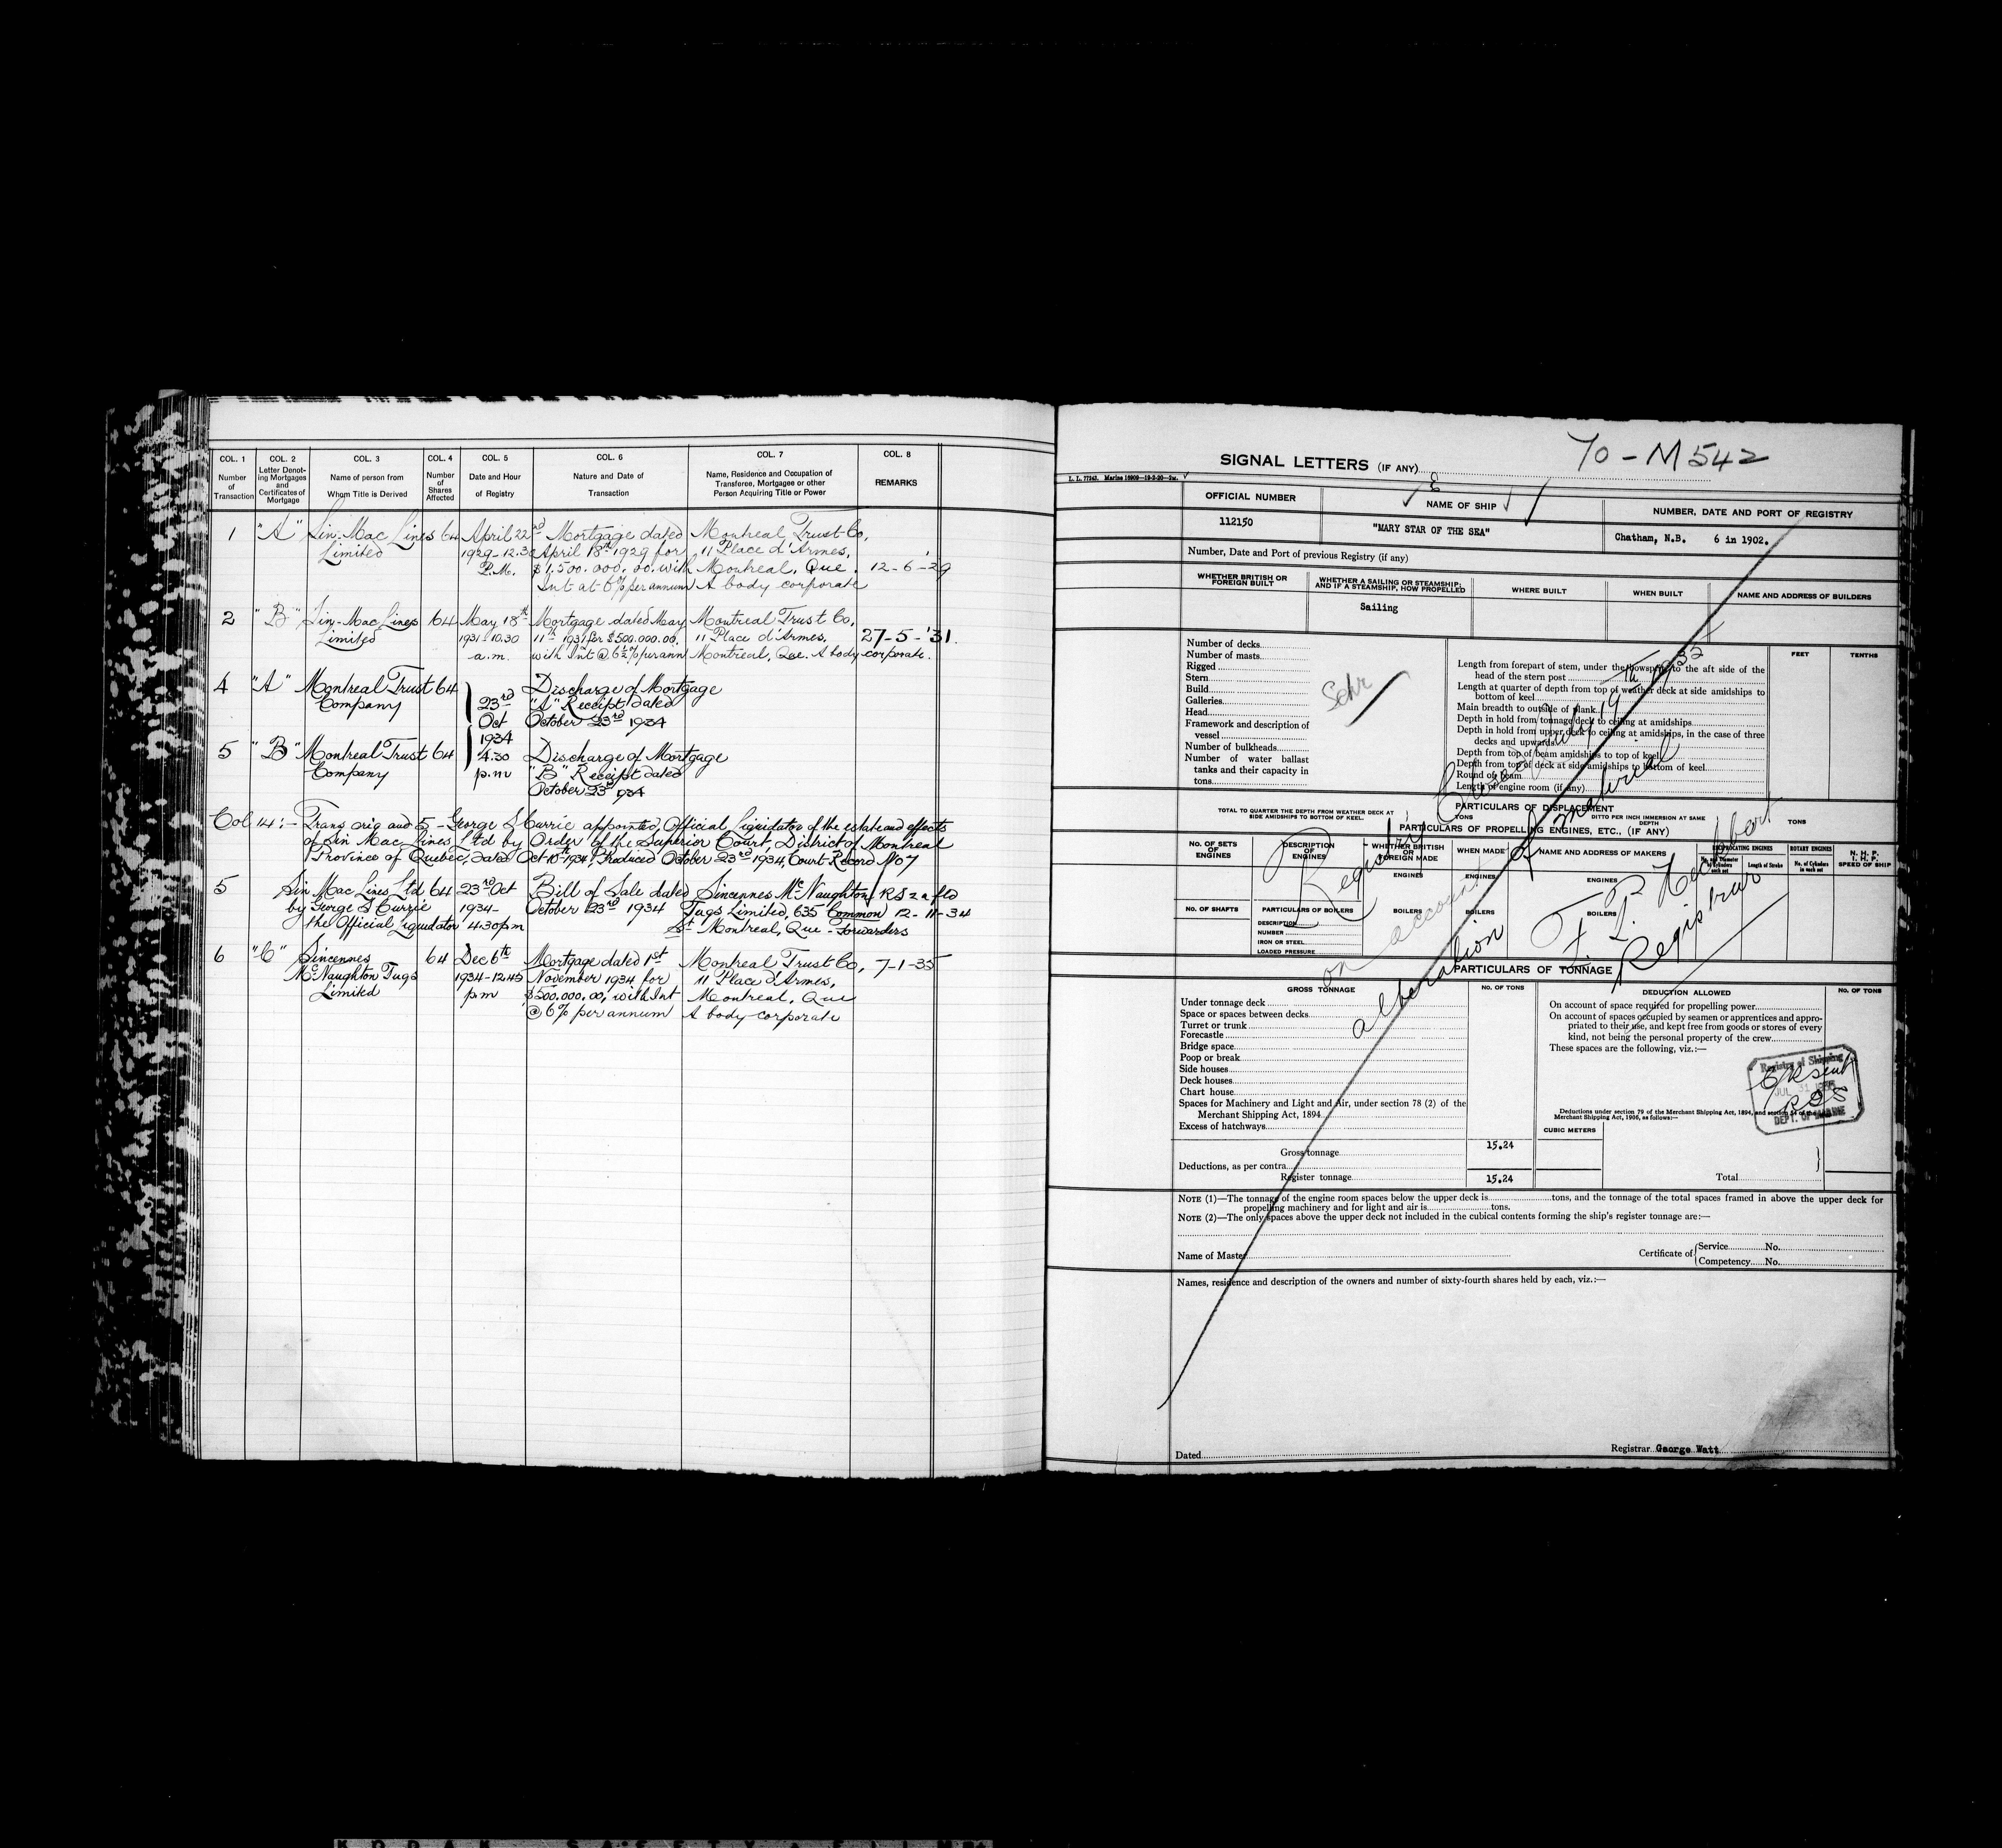 COL. 1 COL. 2 COL. 3 COL. 4 COL. 5 COL. 6 COL. 7 COL. 8
Number of Transaction
Letter Denoting Mortgages and Certificates of Mortgage
Name of person from Whom Title is Derived
Number of Shares Affected
Date and Hour of Registry
Nature and Date of Transaction
Name, Residence and Occupation of Transferee, Mortgagee or other Person Acquiring Title or Power
REMARKS
1 "A" Sin-Mac Lines 64 April 22nd Mortgage dated Montreal Trust Co,
Limited 1929-12.30 April 18th 1929 for 11 Place d'Armes,
P.M. $1,500.000.00. with Montreal, Que. 12-6-'29
Int at 6% per annum A body corporate
2 "B" Sin-Mac Lines 64 May 18th Mortgage dated May Montreal Trust Co,
Limited 1931-10.30 11th 1931 for $500.000.00, 11 Place d'Armes, 27-5-'31.
a.m. with Int @ 6½% per ann Montreal, Que. A body corporate.
4 "A" Montreal Trust 64 Discharge of Mortgage
Company 23rd "A" Receipt dated
Oct October 23rd 1934
1934
5 "B" Montreal Trust 64 4.30 Discharge of Mortgage
Company p.m "B" Receipt dated
October 23rd 1934
Col 14:- Trans orig and 5 - George S Currie appointed Official Liquidator of the estate and effects
of Sin Mac Lines Ltd by Order of the Superior Court, District of Montreal
Province of Quebec, dated Oct 10th 1934, Produced October 23rd 1934, Court Record No 7
5 Sin Mac Lines Ltd 64 23rd Oct Bill of Sale dated Sincennes McNaughton
by George S Currie 1934- October 23rd 1934 Tugs Limited, 635 Common 12-11-34
the Official Liquidator 4.30pm St Montreal, Que - Forwarders
6 "C" Sincennes 64 Dec 6th Mortgage dated 1st Montreal Trust Co, 7-1-35
McNaughton Tugs 1934-12.45 November 1934 for 11 Place d'Armes,
Limited pm $500.000.00, with Int Montreal, Que
@ 6% per annum A body corporate
70-M542
SIGNAL LETTERS (IF ANY)
L. L. 77243. Marine 16909-19-5-20-2M.
OFFICIAL NUMBER NAME OF SHIP NUMBER, DATE AND PORT OF REGISTRY
112150 "MARY STAR OF THE SEA" Chatham, N.B. 6 in 1902.
Number, Date and Port of previous Registry (if any)
WHETHER BRITISH OR FOREIGN BUILT
WHETHER A SAILING OR STEAMSHIP; AND IF A STEAMSHIP, HOW PROPELLED
WHERE BUILT WHEN BUILT NAME AND ADDRESS OF BUILDERS
Sailing
Number of decks
Number of masts
Rigged
Stern
Build
Galleries
Head
Framework and description of
vessel
Number of bulkheads
Number of water ballast
tanks and their capacity in
tons
Schr
FEET TENTHS
Length from forepart of stem, under the bowsprit, to the aft side of the
head of the stern post
Length at quarter of depth from top of weather deck at side amidships to
bottom of keel
Main breadth to outside of plank
Depth in hold from tonnage deck to ceiling at amidships
Depth in hold from upper deck to ceiling at amidships, in the case of three
decks and upwards
Depth from top of beam amidships to top of keel
Depth from top of deck at side amidships to bottom of keel
Round of beam
Length of engine room (if any)
PARTICULARS OF DISPLACEMENT
TOTAL TO QUARTER THE DEPTH FROM WEATHER DECK AT SIDE AMIDSHIPS TO BOTTOM OF KEEL. TONS DITTO PER INCH IMMERSION AT SAME DEPTH TONS
PARTICULARS OF PROPELLING ENGINES, ETC., (IF ANY)
No. OF SETS OF ENGINES
DESCRIPTION OF ENGINES
WHETHER BRITISH OR FOREIGN MADE
WHEN MADE
NAME AND ADDRESS OF MAKERS
RECIPROCATING ENGINES
ROTARY ENGINES
N. H. P.
I. H. P.
SPEED OF SHIP
Length of Stroke
No. of Cylinders in each set
ENGINES ENGINES ENGINES
No. OF SHAFTS PARTICULARS OF BOILERS BOILERS BOILERS BOILERS
DESCRIPTION
NUMBER
IRON OR STEEL
LOADED PRESSURE
Registry Closed July 19th 1932
on account of material
alteration
Registrar
PARTICULARS OF TONNAGE
GROSS TONNAGE No. OF TONS DEDUCTION ALLOWED No. OF TONS
Under tonnage deck
Space or spaces between decks
Turret or trunk
Forecastle
Bridge space
Poop or break
Side houses
Deck houses
Chart house
Spaces for Machinery and Light and Air, under section 78 (2) of the
Merchant Shipping Act, 1894
Excess of hatchways
On account of space required for propelling power
On account of spaces occupied by seamen or apprentices and appro-
priated to their use, and kept free from goods or stores of every
kind, not being the personal property of the crew
These spaces are the following, viz.:—
Registry of Shipping
DEPT. OF MARINE
Deductions under section 79 of the Merchant Shipping Act, 1894, and section 54 of the
Merchant Shipping Act, 1906, as follows:—
CUBIC METERS
Gross tonnage 15.24
Deductions, as per contra
Register tonnage 15.24 Total
NOTE (1)—The tonnage of the engine room spaces below the upper deck is tons, and the tonnage of the total spaces framed in above the upper deck for
propelling machinery and for light and air is tons.
NOTE (2)—The only spaces above the upper deck not included in the cubical contents forming the ship's register tonnage are:—
Name of Master Certificate of Service No.
Competency No.
Names, residence and description of the owners and number of sixty-fourth shares held by each, viz.:—
Dated Registrar George Watt